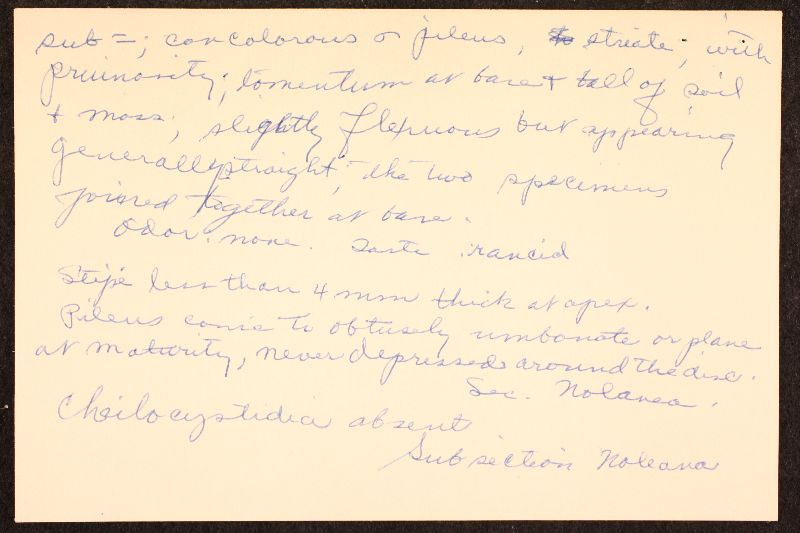 sub =; concolorous o pileus, striate, with
pruinosity; tomentum at base + ball of soil
+ moss; slightly flexuous but appearing
generally straight; the two specimens
joined together at base.
Odor: none. Taste: rancid
Stipe less than 4 mm thick at apex.
Pileus conic to obtusely umbonate or plane
at maturity, never depressed around the disc.
Sec. Nolanea.
Cheilocystidia absent
Subsection Nolanea